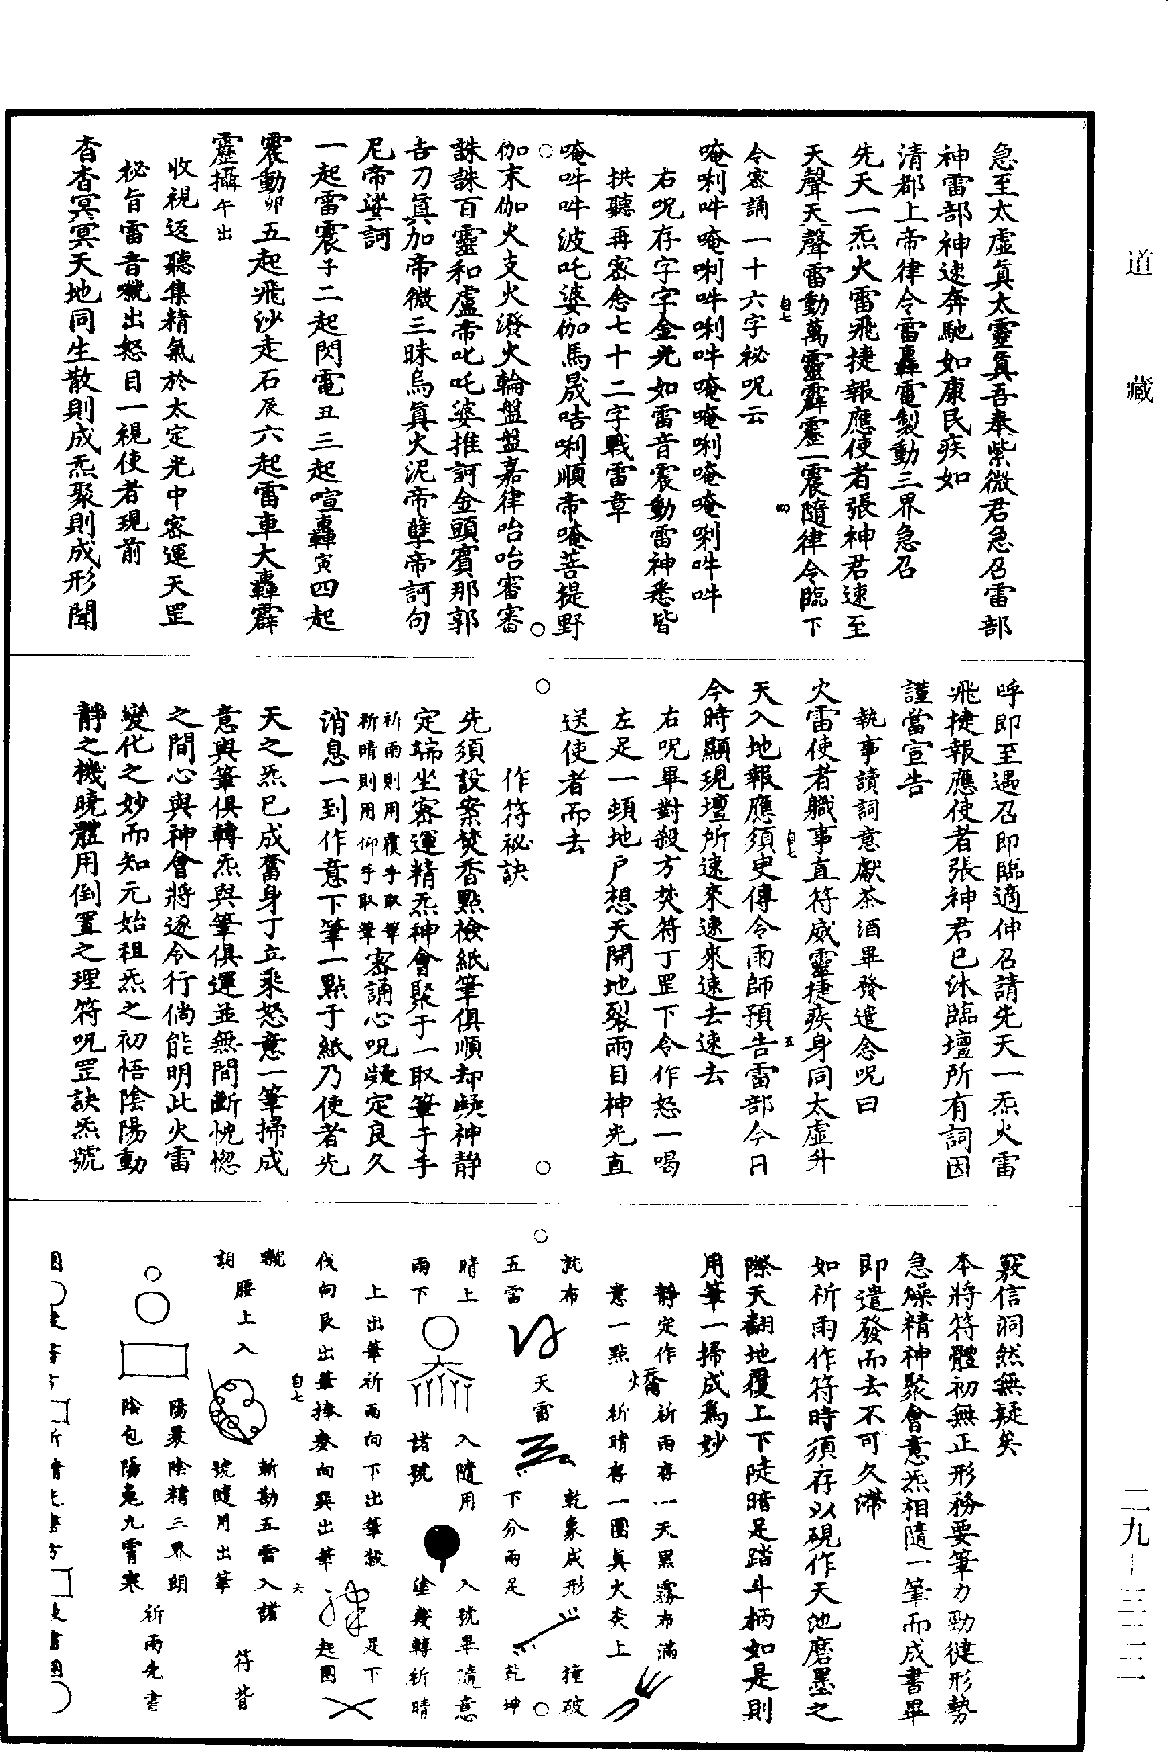 道藏
二九—三三二
急至太虛眞太靈眞吾奉紫微君急召雷部
神雷部神速奔馳如康民疾如
清都上帝律令雷轟電製動三界急召
先天一炁火雷飛捷報應使者張神君速至
天聲天聲雷動萬靈霹靂一震隨律令臨下
令密誦一十六字秘咒云
唵唎吽唵唎吽唎吽唵唵唎唵唵唎吽吽
右咒存字字金光如雷音震動雷神悉皆
拱聽再密念七十二字戰雷章
唵吽吽波吒婆伽馬晟咭唎順帝唵菩提野
伽末伽火支火潑火輪盤盤嘉律咍咍審審
誅誅百靈和盧帝叱吒婆推訶金頭賓那郭
吉刀眞加帝微三昧烏眞火泥帝孽帝訶句
尼帝娑訶
一起雷震子二起閃電丑三起喧轟寅四起
震動卯五起飛沙走石辰六起雷車大轟霹
靂攝午出
收視返聽集精氣於太定光中密運天罡
秘旨雷音噦出怒目一視使者現前
杳杳冥冥天地同生散則成炁聚則成形聞
呼即至遇召即臨適伸召請先天一炁火雷
飛捷報應使者張神君已沐臨壇所有詞因
謹當宣告
執事讀詞意獻茶酒畢發遣念咒曰
火雷使者職事直符威靈捷疾身同太虛升
天入地報應須臾傳令雨師預告雷部今日
今時顯現壇所速來速來速去速去
右咒畢對殺方焚符丁罡下令作怒一喝
左足一頓地戶想天開地裂兩目神光直
送使者而去
作符秘訣
先須設案焚香點檢紙筆俱順却凝神靜
定端坐密運精炁神會聚于一取筆于手
祈雨則用覆手取筆
祈晴則用仰手取筆密誦心咒凝定良久
消息一到作意下筆一點于紙乃使者先
天之炁已成奮身丁立乘怒意一筆掃成
意與筆俱轉炁與筆俱運並無間斷恍惚
之間心與神會將逐令行倘能明此火雷
變化之妙而知元始祖炁之初悟陰陽動
靜之機曉體用倒置之理符咒罡訣炁號
竅信洞然無疑矣
本將符體初無正形務要筆力勁健形勢
急燥精神聚會意炁相隨一筆而成書畢
即遣發而去不可久滯
如祈雨作符時須存以硯作天池磨墨之
際天翻地覆上下陡暗是踏斗柄如是則
用筆一掃成爲妙
靜定作 祈雨存一天黑霧布滿
意一點 祈晴存一團眞火炎上
訖布 乾象成形 撞破
五雷 天雷 下分兩足 乾坤
晴上 入隨用 入號畢隨意
雨下 諸號 塗幾轉祈晴
上出筆祈雨向下出筆 足下
伐向艮出筆捧奏向巽出筆 起圈
號 斬勘五雷入諱
腰上入
詞 號隨用出筆 符背
陽晨陰精三界頭
陰包陽冤九霄寒 祈雨先書